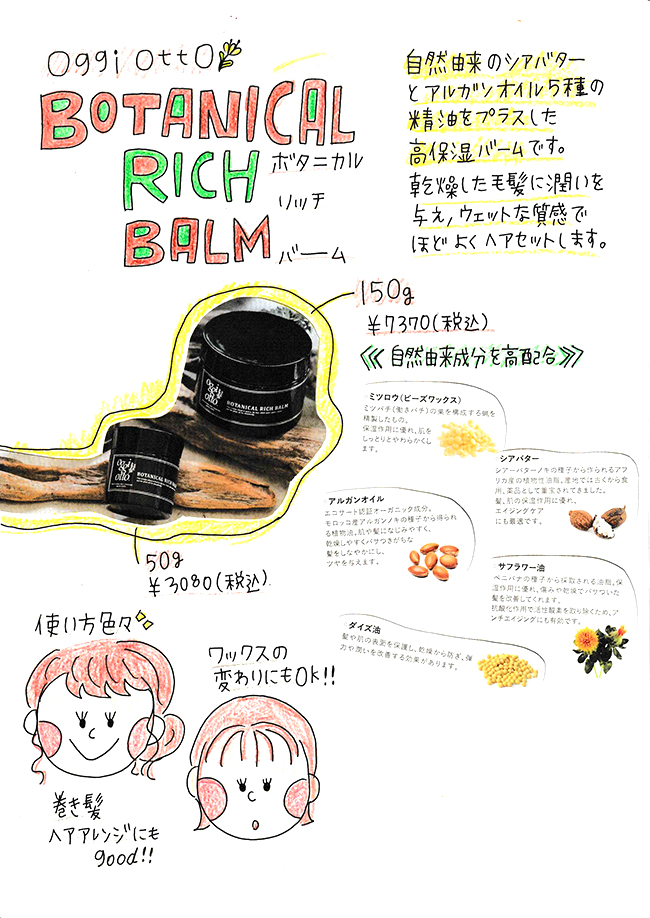 oggi otto
BOTANICAL
RICH
BALM
ボタニカル
リッチ
バーム
自然由来のシアバター
とアルガンオイル5種の
精油をプラスした
高保湿バームです。
乾燥した毛髪に潤いを
与え、ウェットな質感で
ほどよくヘアセットします。
150g
¥7370(税込)
《自然由来成分を高配合》
oggi
otto
BOTANICAL RICH BALM
oggi
otto
BOTANICAL RICH BALM
50g
¥3080(税込)
ミツロウ(ビーズワックス)
ミツバチ(働きバチ)の巣を構成する蝋を
精製したもの。
保湿作用に優れ、肌を
しっとりとやわらかくし
ます。
シアバター
シアーバターノキの種子から作られるアフ
リカ産の植物性油脂。産地では古くから食
用、薬品として重宝されてきました。
髪、肌の保湿作用に優れ、
エイジングケア
にも最適です。
アルガンオイル
エコサート認証オーガニック成分。
モロッコ産アルガンノキの種子から得られ
る植物油。肌や髪になじみやすく、
乾燥しやすくパサつきがちな
髪をしなやかにし、
ツヤを与えます。
サフラワー油
ベニバナの種子から採取される油脂。保
湿作用に優れ、傷みや乾燥でパサついた
髪を改善してくれます。
抗酸化作用で活性酸素を取り除くため、ア
ンチエイジングにも有効です。
ダイズ油
髪や肌の表面を保護し、乾燥から防ぎ、弾
力や潤いを改善する効果があります。
使い方色々
ワックスの
変わりにもOK!!
巻き髪
ヘアアレンジにも
good!!